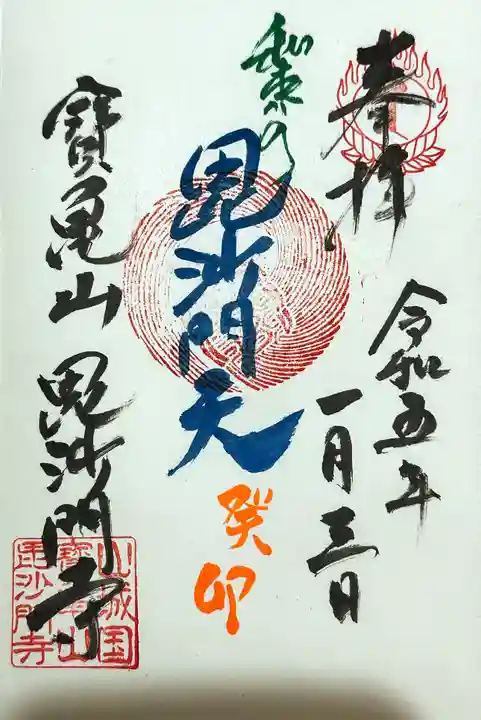 奉拝
令和五年
一月三日
和束の
毘沙門天
癸卯
寶亀山 毘沙門寺
山城国
寶亀山
毘沙門寺